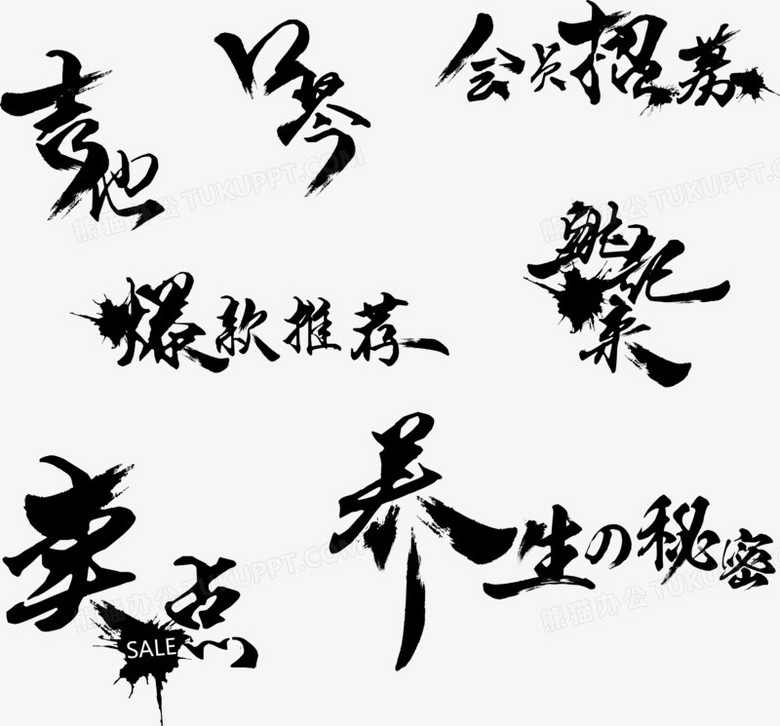 吉他
口琴
会员招募
爆款推荐
卖点
SALE
养生の秘密
熊猫办公 TUKUPPT.COM
熊猫办公 TUKUPPT.COM
熊猫办公 TUKUPPT.COM
熊猫办公 TUKUPPT.COM